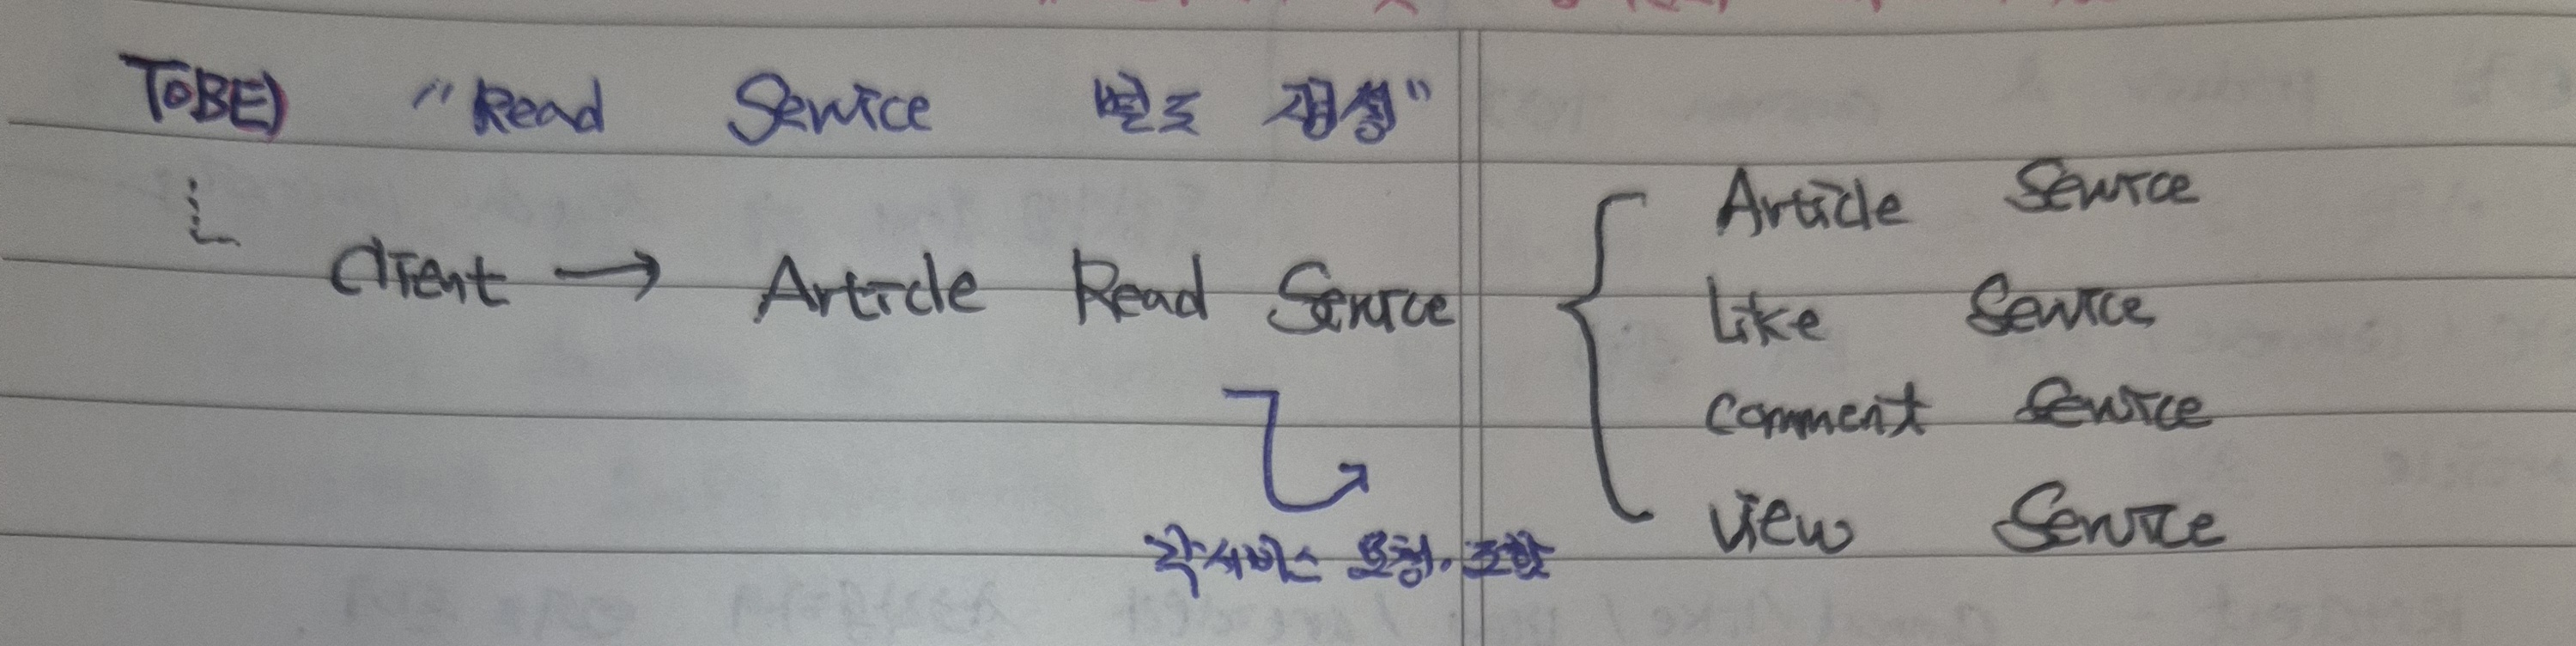 TOBE) "Read Service 별도 생성"
Client → Article Read Service
Article Service
Like Service
Comment Service
View Service
각 서비스 요청, 조합